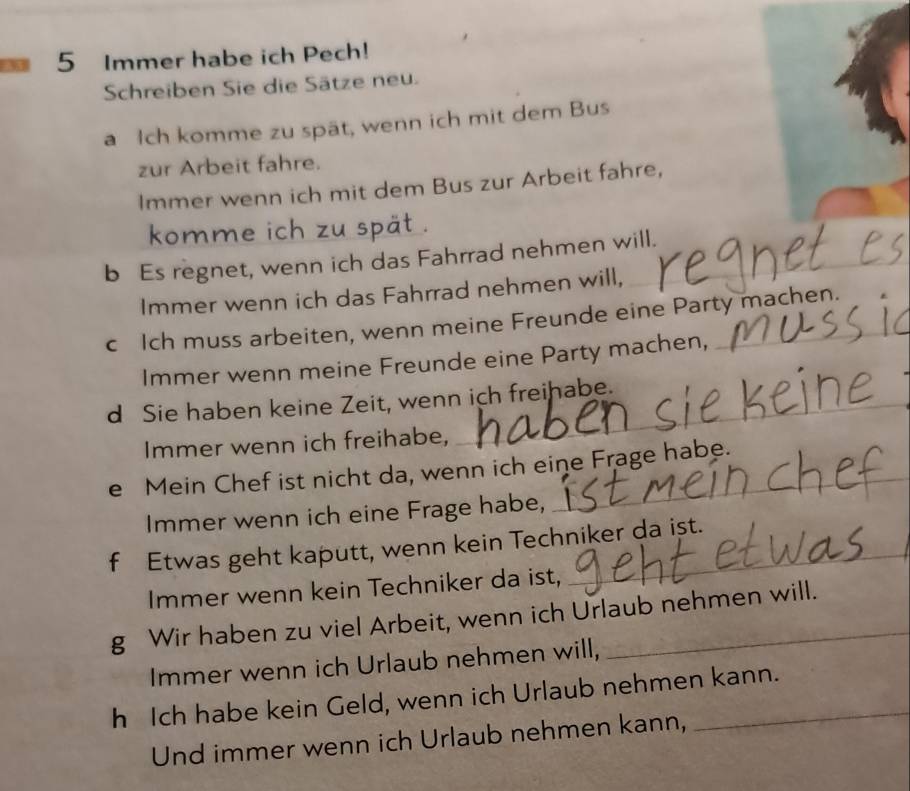 5 Immer habe ich Pech!
Schreiben Sie die Sätze neu.
a Ich komme zu spät, wenn ich mit dem Bus
zur Arbeit fahre.
Immer wenn ich mit dem Bus zur Arbeit fahre,
komme ich zu spät.
b Es regnet, wenn ich das Fahrrad nehmen will.
Immer wenn ich das Fahrrad nehmen will, regnet es
c Ich muss arbeiten, wenn meine Freunde eine Party machen.
Immer wenn meine Freunde eine Party machen, muss ic
d Sie haben keine Zeit, wenn ich freihabe.
Immer wenn ich freihabe, haben sie keine
e Mein Chef ist nicht da, wenn ich eine Frage habe.
Immer wenn ich eine Frage habe, ist mein chef
f Etwas geht kaputt, wenn kein Techniker da ist.
Immer wenn kein Techniker da ist, geht etwas
g Wir haben zu viel Arbeit, wenn ich Urlaub nehmen will.
Immer wenn ich Urlaub nehmen will,
h Ich habe kein Geld, wenn ich Urlaub nehmen kann.
Und immer wenn ich Urlaub nehmen kann,